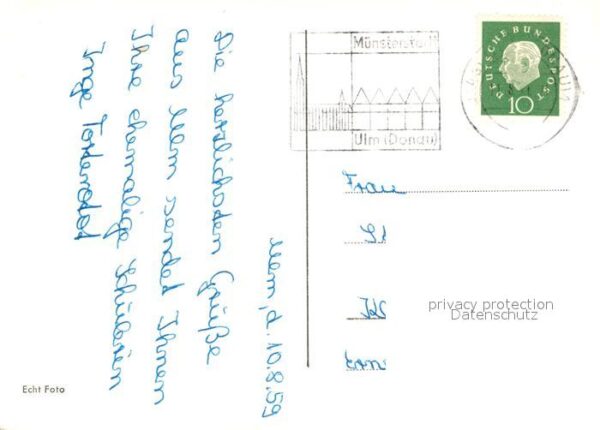 Ulm, d. 10.8.59
Die herzlichsten Grüße
aus Ulm sendet Ihnen
Ihre ehemalige Schülerin
Inge
Münsterstadt
Ulm (Donau)
DEUTSCHE BUNDESPOST
10
Frau
privacy protection
Datenschutz
Echt Foto